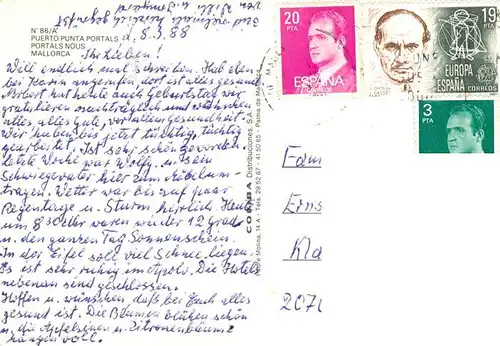 Nº 86/A
PUERTO PUNTA PORTALS
PORTALS NOUS
MALLORCA
d. 8.3.88
Ihr Lieben!
Will endlich mal schreiben. Hab eben
bei Karin angerufen, dort ist alles gesund.
Norbert hat heute auch Geburtstag wir
gratulieren nachträglich und wünschen
alles alles Gute, vor allem Gesundheit.
Wir haben bis jetzt tüchtig, tüchtig
gearbeitet. Ist sehr schön geworden.
Letzte Woche war Wolfg. u. sein
Schwiegervater hier zum Möbelum-
tragen. Wetter war bis auf paar
Regentage u. Sturm herrlich. Heute
um 8:30 Uhr waren wieder 12 grad
u. den ganzen Tag Sonnenschein.
In der Eifel soll viel Schnee liegen.
Es ist sehr ruhig im Apolo. Die Hotels
nebenan sind geschlossen.
Hoffen u. wünschen, daß bei Euch alles
gesund ist. Die Blumen blühen schön
u. die Apfelsinen u. Zitronenbäume
hängen voll.
COMBA Distribuciones, S.A.
Molina, 14 A - Tels. 29 52 87 - 41 50 65 - Palma de
20
PTA
ESPAÑA
CORREOS
19
PTA
EUROPA
ESPAÑA
CORREOS
3
PTA
Fam
Erns
2071